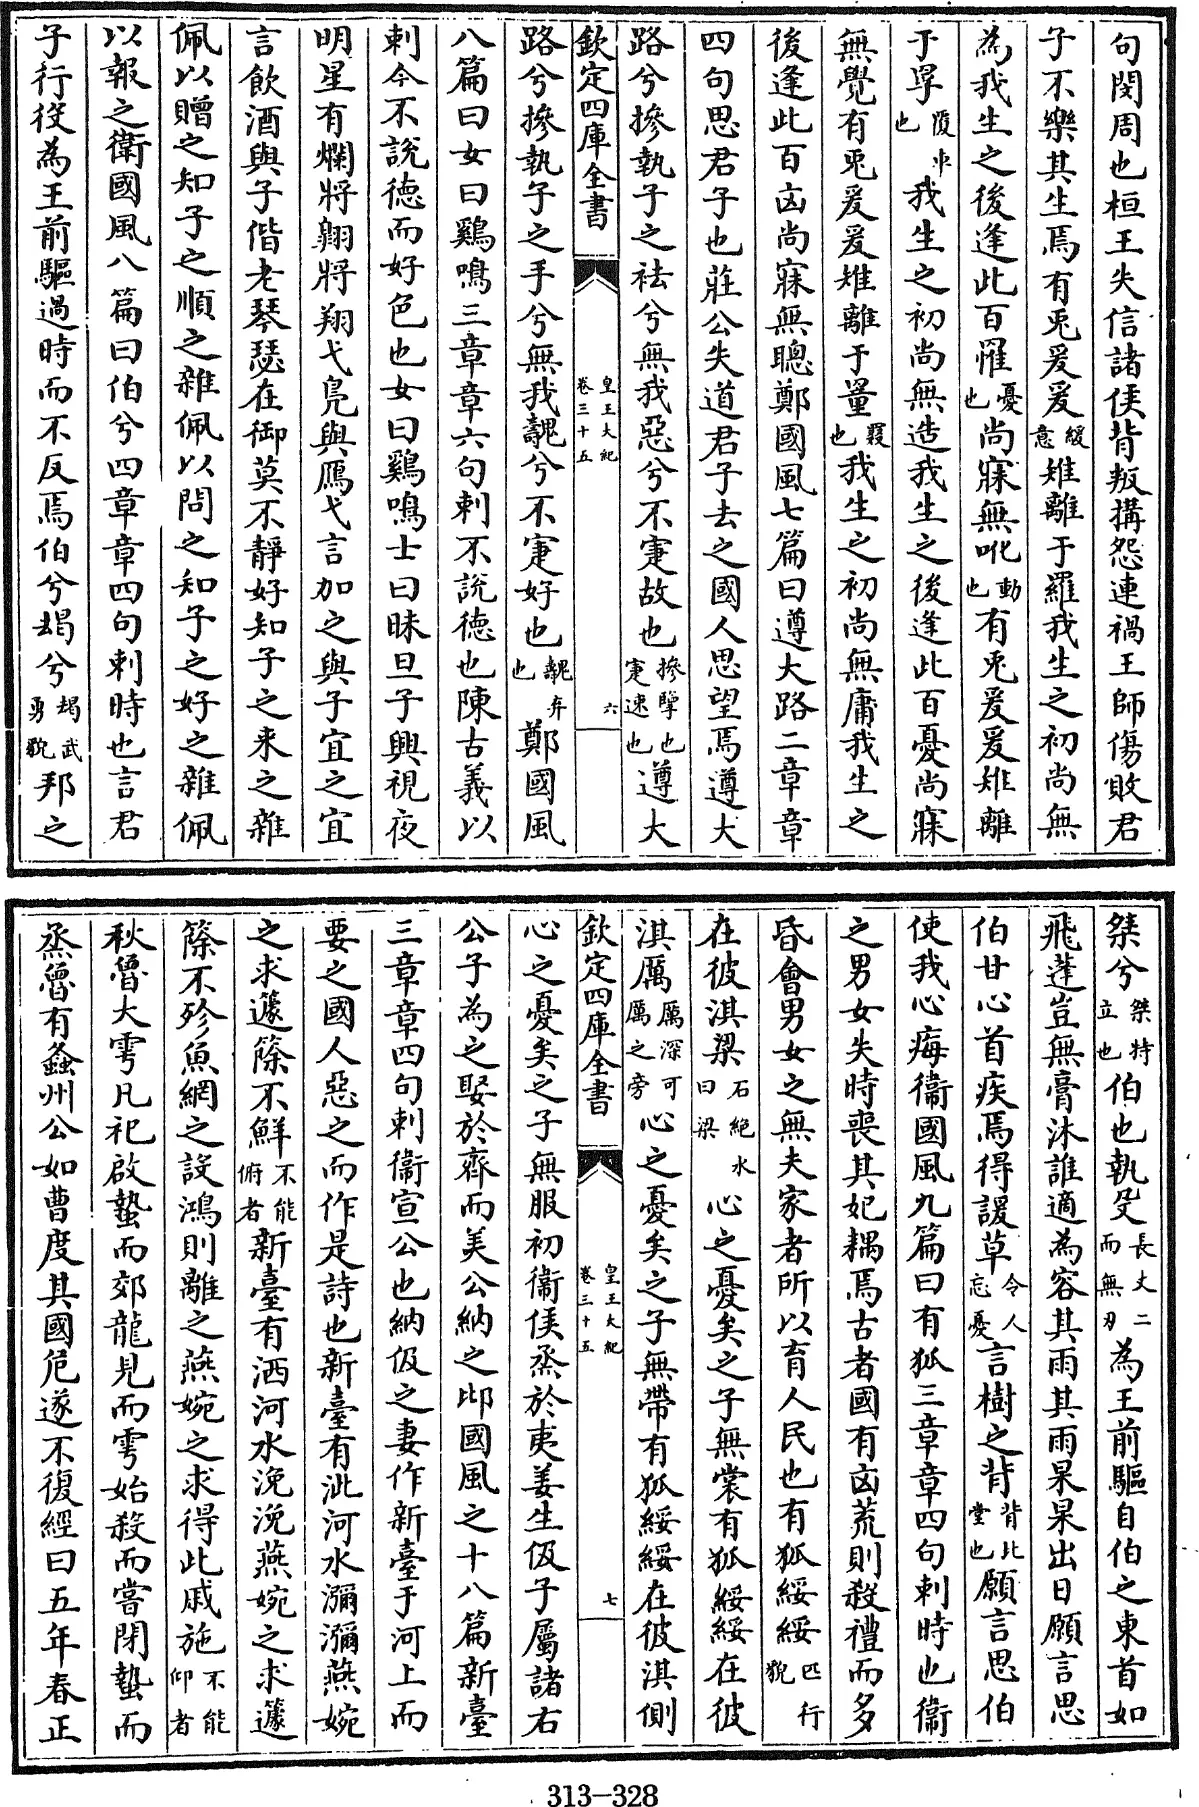 句閔周也桓王失信諸侯背叛搆怨連禍王師傷敗君
子不樂其生焉有兎爰爰緩意雉離于羅我生之初尚無
為我生之後逢此百罹憂也尚寐無吪動也有兎爰爰雉離
于罦覆車也我生之初尚無造我生之後逢此百憂尚寐
無覺有兎爰爰雉離于罿罬也我生之初尚無庸我生之
後逢此百凶尚寐無聰鄭國風七篇曰遵大路二章章
四句思君子也莊公失道君子去之國人思望焉遵大
路兮摻執子之袪兮無我惡兮不寁故也摻擥也寁速也遵大
欽定四庫全書
皇王大紀
卷三十五
六
路兮摻執子之手兮無我魗兮不寁好也魗弃也鄭國風
八篇曰女曰鷄鳴三章章六句刺不說德也陳古義以
刺今不說德而好色也女曰鷄鳴士曰昧旦子興視夜
明星有爛將翺將翔弋鳧與鴈弋言加之與子宜之宜
言飲酒與子偕老琴瑟在御莫不靜好知子之来之雜
佩以贈之知子之順之雜佩以問之知子之好之雜佩
以報之衛國風八篇曰伯兮四章章四句刺時也言君
子行役為王前驅過時而不反焉伯兮朅兮朅武勇貌邦之
桀兮桀特立也伯也執殳長丈二而無刃為王前驅自伯之東首如
飛蓬豈無膏沐誰適為容其雨其雨杲杲出日願言思
伯甘心首疾焉得諼草令人忘憂言樹之背背北堂也願言思伯
使我心痗衞國風九篇曰有狐三章章四句刺時也衞
之男女失時喪其妃耦焉古者國有凶荒則殺禮而多
昏會男女之無夫家者所以育人民也有狐綏綏匹行貌
在彼淇梁石絶水曰梁心之憂矣之子無裳有狐綏綏在彼
淇厲厲深可厲之旁心之憂矣之子無帶有狐綏綏在彼淇側
欽定四庫全書
皇王大紀
卷三十五
七
心之憂矣之子無服初衞侯烝於夷姜生伋子屬諸右
公子為之娶於齊而美公納之邶國風之十八篇新臺
三章章四句刺衞宣公也納伋之妻作新臺于河上而
要之國人惡之而作是詩也新臺有泚河水瀰瀰燕婉
之求籧篨不鮮不能俯者新臺有洒河水浼浼燕婉之求籧
篨不殄魚網之設鴻則離之燕婉之求得此戚施不能仰者
秋魯大雩凡祀啟蟄而郊龍見而雩始殺而嘗閉蟄而
烝魯有螽州公如曹度其國危遂不復經曰五年春正
313-328